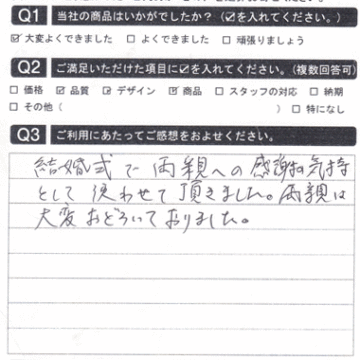 Q1 当社の商品はいかがでしたか？（☑を入れてください。）
☑ 大変よくできました □ よくできました □ 頑張りましょう
Q2 ご満足いただけた項目に☑を入れてください。（複数回答可）
□ 価格 ☑ 品質 ☑ デザイン ☑ 商品 □ スタッフの対応 □ 納期
□ その他（ ） □ 特になし
Q3 ご利用にあたってご感想をおよせください。
結婚式で両親への感謝の気持
として使わせて頂きました。両親は
大変おどろいておりました。